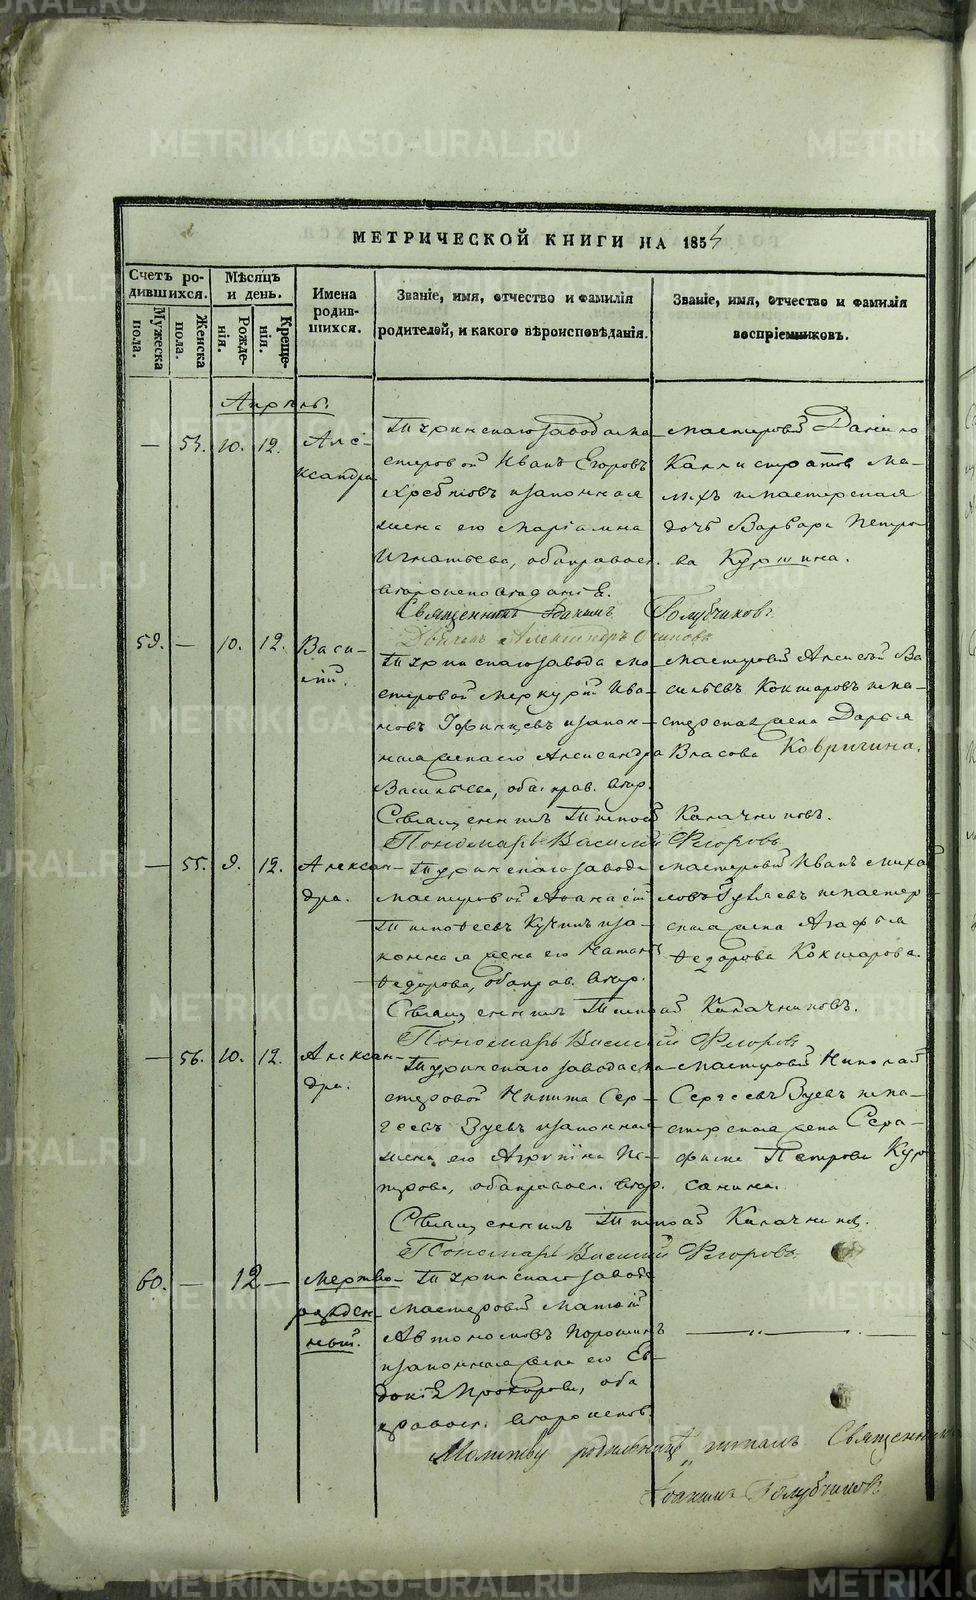 МЕТРИЧЕСКОЙ КНИГИ НА 1854
Счетъ ро-
дившихся.
Мѣсяцъ
и день.
Мужеска
пола.
Женска
пола.
Рожде-
нія.
Креще-
нія.
Имена
родив-
шихся.
Званіе, имя, отчество и фамилія
родителей, и какого вѣроисповѣданія.
Званіе, имя, отчество и фамилія
воспріемниковъ.
Апрѣль.
— 10. 12. Але-
ксандра
Туринскаго завода ма-
стеровой Иванъ Егоровъ
и законная
жена его Маріамна
Игнатьева, оба правосл.
мастеровой Данило
Каллистратовъ Ма-
лыхъ и мастерская
дочь Варвара Петро-
ва Куршина.
Священникъ Іоакимъ Голубчиковъ
Дьячекъ Александръ Осиповъ
59. — 10. 12. Васи-
лій.
Туринскаго завода ма-
стеровой Меркурій Ива-
новъ и закон-
ная жена его Александра
Васильева, оба прав. вѣр.
мастеровой Алексѣй Ва-
сильевъ Кокшаровъ и ма-
стерская жена Дарья
Власова Ковригина.
Священникъ Тимоѳей Калачниковъ.
Пономарь Василій Флоровъ
— 55. 9. 12. Алексан-
дра.
Туринскаго завода
мастеровой Аѳанасій
Тимоѳеевъ и за-
конная жена его Наталья
Ѳедорова, оба прав. вѣр.
мастеровой Иванъ Михай-
ловъ и мастер-
ская жена Агафья
Ѳедорова Кокшарова.
Священникъ Тимоѳей Калачниковъ.
Пономарь Василій Флоровъ
— 56. 10. 12. Алексан-
дра.
Туринскаго завода ма-
стеровой Никита Сер-
геевъ Зуевъ и законная
жена его Агрипина Пе-
трова, оба правосл. вѣр.
мастеровой Николай
Сергеевъ Зуевъ и ма-
стерская жена Сера-
фима Петрова Кур-
санина.
Священникъ Тимоѳей Калачниковъ.
Пономарь Василій Флоровъ
60. — 12 — Мертво-
рожден-
ный.
Туринскаго завода
мастеровой Матѳій
Автономовъ Порошинъ
и законная жена его Ев-
докія Прохорова, оба
правосл. вѣроисповѣ.
Молитву родильницѣ читалъ Священникъ
Іоакимъ Голубчиковъ
METRIKI.GASO-URAL.RU